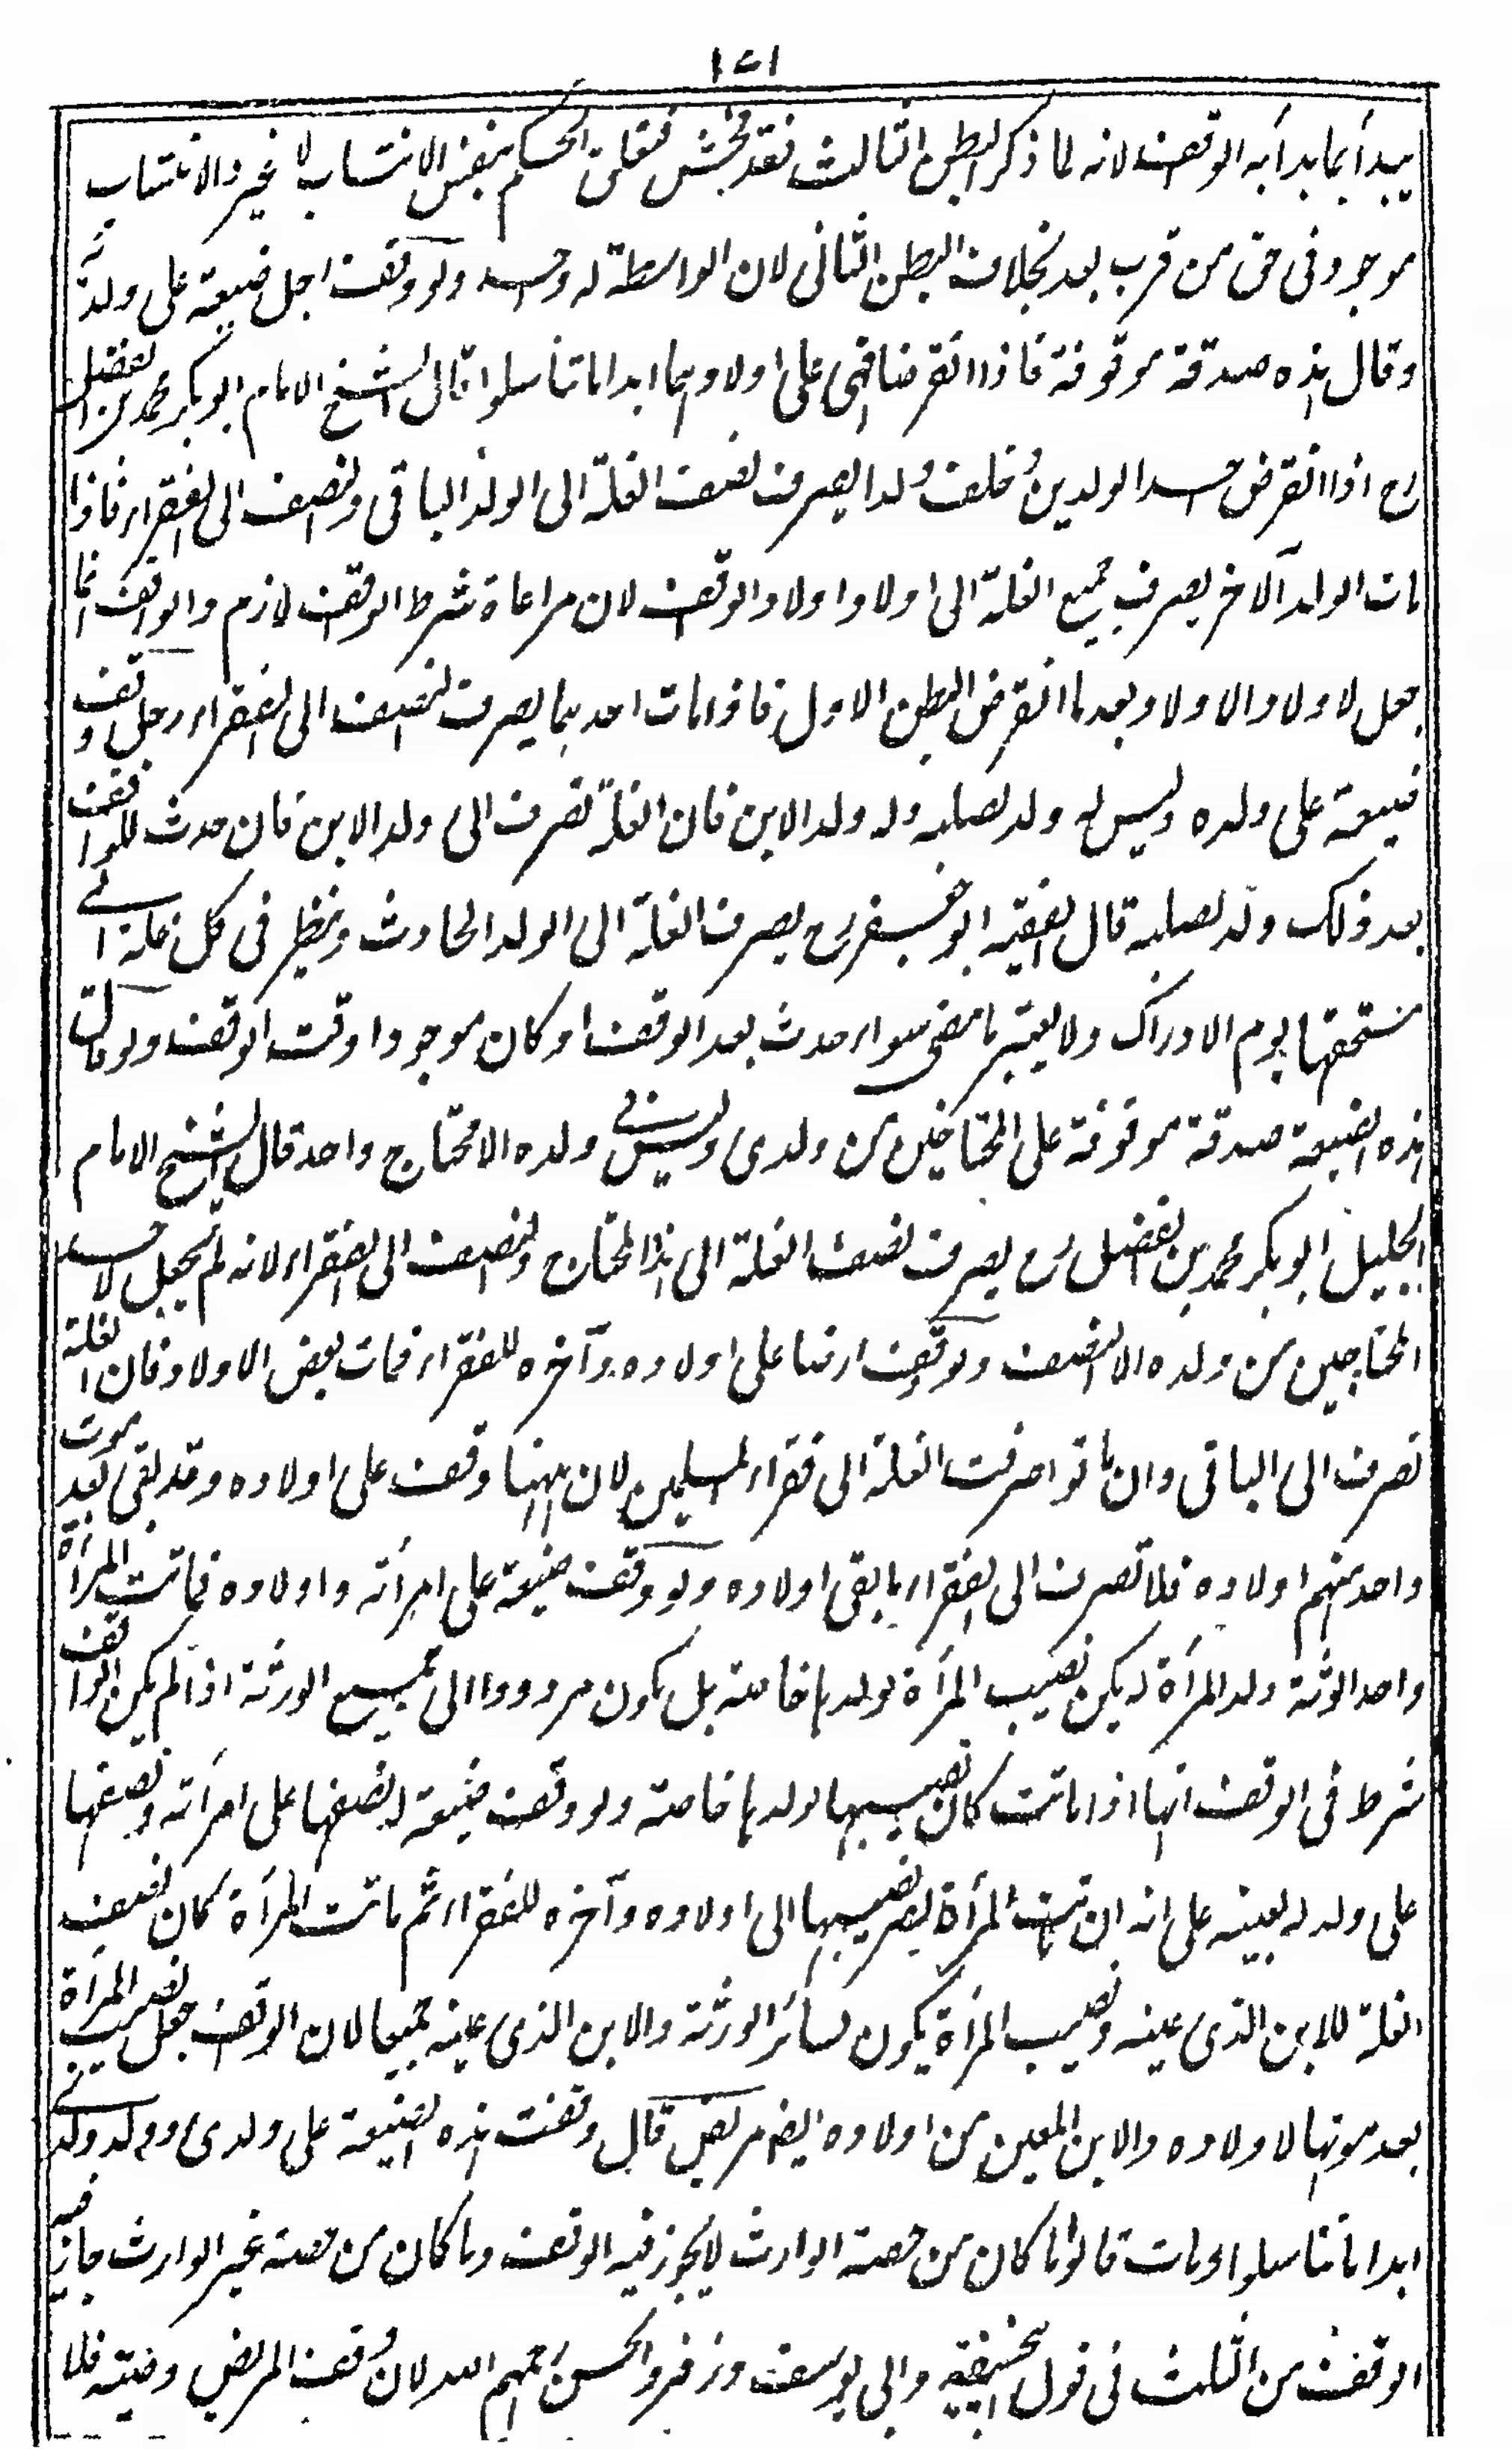 ١٥١
يبدأ بما بدأ به الوقف لانه لما ذكر البطن الثالث فقد فحش فتعلق الحكم بنفس الانتساب لا غير والانتساب
موجود فى حق من قرب بعد بخلاف البطن الثانى لان الواسطة له واحد ولو وقف رجل ضيعة على ولديه
وقال هذه صدقة موقوفة فاذا انقرضا فهى على اولادهما ابدا ما تناسلوا قال الشيخ الامام ابو بكر محمد بن الفضل
رح اذا انقرض احد الولدين وخلف ولدا يصرف نصف الغلة الى الولد الباقى ونصف الى الفقراء فاذا
مات الولد الآخر يصرف جميع الغلة الى اولاد اولاد الواقف لان مراعاة شرط الوقف لازم والواقف انما
جعل لاولاد الاولاد بعد ما انقرض البطن الاول فاذا مات احدهما يصرف النصف الى الفقراء رجل وقف
ضيعة على ولده وليس له ولد لصلبه وله ولد الابن فان الغلة تصرف الى ولد الابن فان حدث للواقف
بعد ذلك ولد لصلبه قال الفقيه ابو جعفر رح يصرف الغلة الى الولد الحادث وينظر فى كل غلة الى
مستحقها يوم الادراك ولا يعتبر ما مضى سواء حدث بعد الوقف او كان موجودا وقت الوقف ولو قال
هذه الضيعة صدقة موقوفة على المحتاجين من ولدى وليس فى ولده الا محتاج واحد قال الشيخ الامام
الجليل ابو بكر محمد بن الفضل رح يصرف نصف الغلة الى هذا المحتاج والنصف الى الفقراء لانه لم يجعل لاحد
المحتاجين من ولده الا النصف ولو وقف ارضا على اولاده وآخره للفقراء فمات بعض الاولاد فان الغلة
تصرف الى الباقى وان ماتوا صرفت الغلة الى فقراء المسلمين لان ههنا وقف على اولاده وقد بقى بعد موت
واحد منهم اولاده فلا تصرف الى الفقراء ما بقى اولاده ولو وقف ضيعة على امرأته واولاده فماتت المرأة
واحد الورثة ولد المرأة لم يكن نصيب المرأة لولدها خاصة بل يكون مردودا الى جميع الورثة اذا لم يكن الواقف
شرط فى الوقف انها اذا ماتت كان نصيبها لولدها خاصة ولو وقف ضيعة له نصفها على امرأته ونصفها
على ولد له بعينه على انه ان ماتت المرأة يصرف نصيبها الى اولاده وآخره للفقراء ثم ماتت المرأة كان نصف
الغلة للابن الذى عينه ونصيب المرأة يكون لسائر الورثة والابن الذى عينه جميعا لان الواقف جعل نصيب المرأة
بعد موتها لاولاده والابن المعين من اولاده ايضا مريض قال وقفت هذه الضيعة على ولدى وولد ولدى
ابدا ما تناسلوا ومات قالوا ما كان من حصة الوارث لا يجوز فيه الوقف وما كان من حصة غير الوارث جاز فيه
الوقف من الثلث فى قول ابيحنيفة وابى يوسف وزفر والحسن رحمهم الله لان وقف المريض وصيته فلا